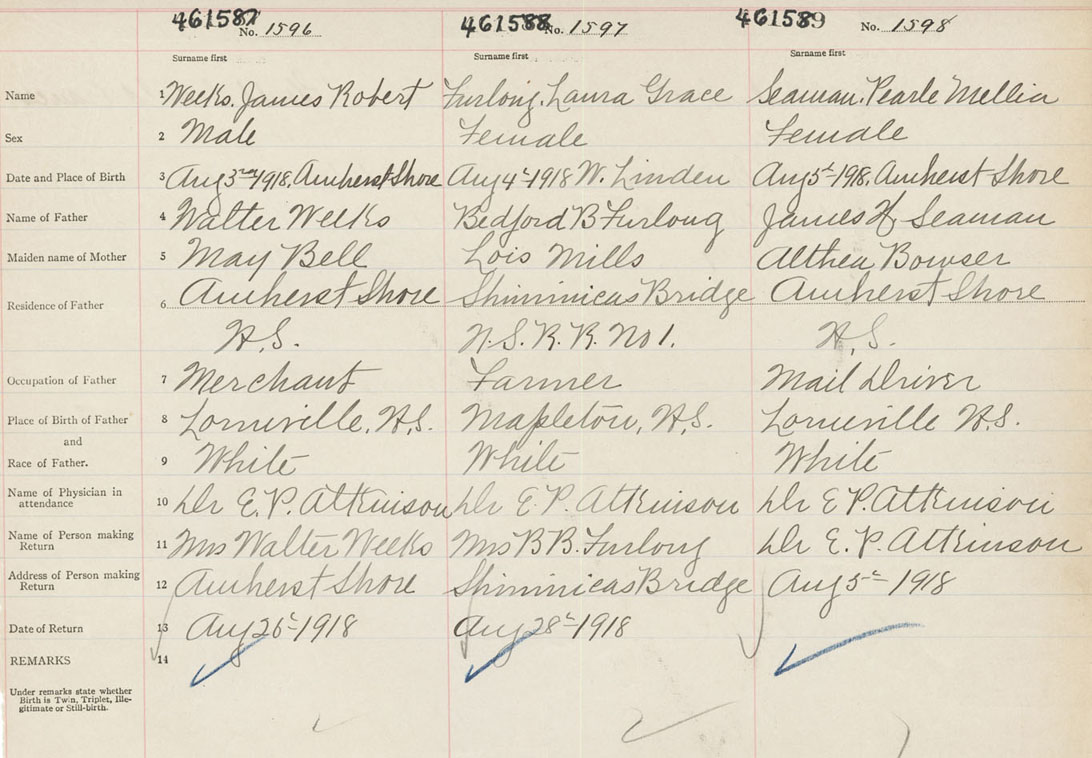 461587 No. 1596 461588 No. 1597 461589 No. 1598
Surname first Surname first Surname first
Name 1 Weeks. James Robert Furlong. Laura Grace Seaman. Pearle Mellia
Sex 2 Male Female Female
Date and Place of Birth 3 Aug 3rd 1918. Amherst Shore Aug 4th 1918 W. Linden Aug 5th 198. Amherst Shore
Name of Father 4 Walter Weeks Bedford B Furlong James H Seaman
Maiden name of Mother 5 May Bell Lois Mills Althea Bowser
Residence of Father 6 Amherst Shore Shinimicas Bridge Amherst Shore
N.S. N.S. R.R. No 1. N.S.
Occupation of Father 7 Merchant Farmer Mail Driver
Place of Birth of Father 8 Lorneville, N.S. Mapleton, N.S. Lorneville N.S.
and
Race of Father. 9 White White White
Name of Physician in attendance 10 Dr E. P. Atkinson Dr E. P. Atkinson Dr E P. Atkinson
Name of Person making Return 11 Mrs Walter Weeks Mrs B B. Furlong Dr E. P. Atkinson
Address of Person making Return 12 Amherst Shore Shinimicas Bridge Aug 5th 1918
Date of Return 13 Aug 26th 1918 Aug 28th 1918
REMARKS 14
Under remarks state whether
Birth is Twin, Triplet, Ille-
gitimate or Still-birth.